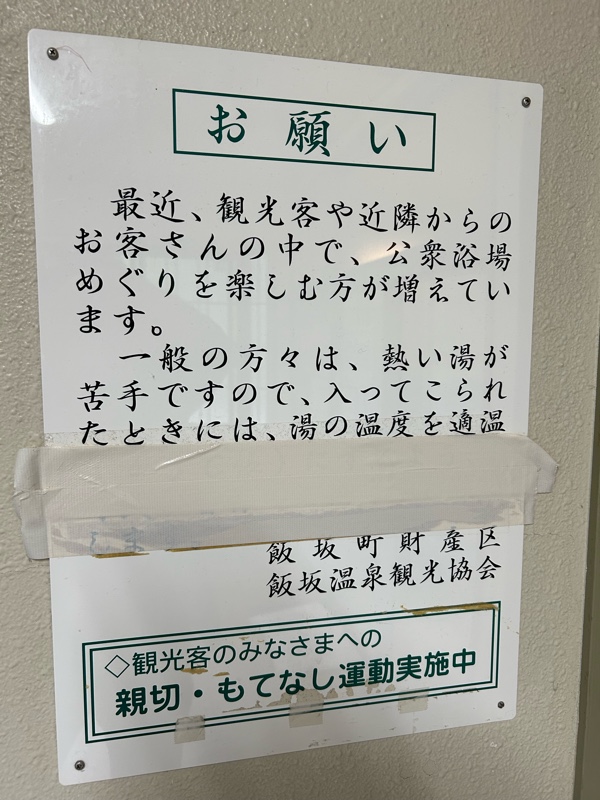 お願い
最近、観光客や近隣からの
お客さんの中で、公衆浴場
めぐりを楽しむ方が増えてい
ます。
一般の方々は、熱い湯が
苦手ですので、入ってこられ
たときには、湯の温度を適温
しま
飯坂町財産区
飯坂温泉観光協会
◇観光客のみなさまへの
親切・もてなし運動実施中